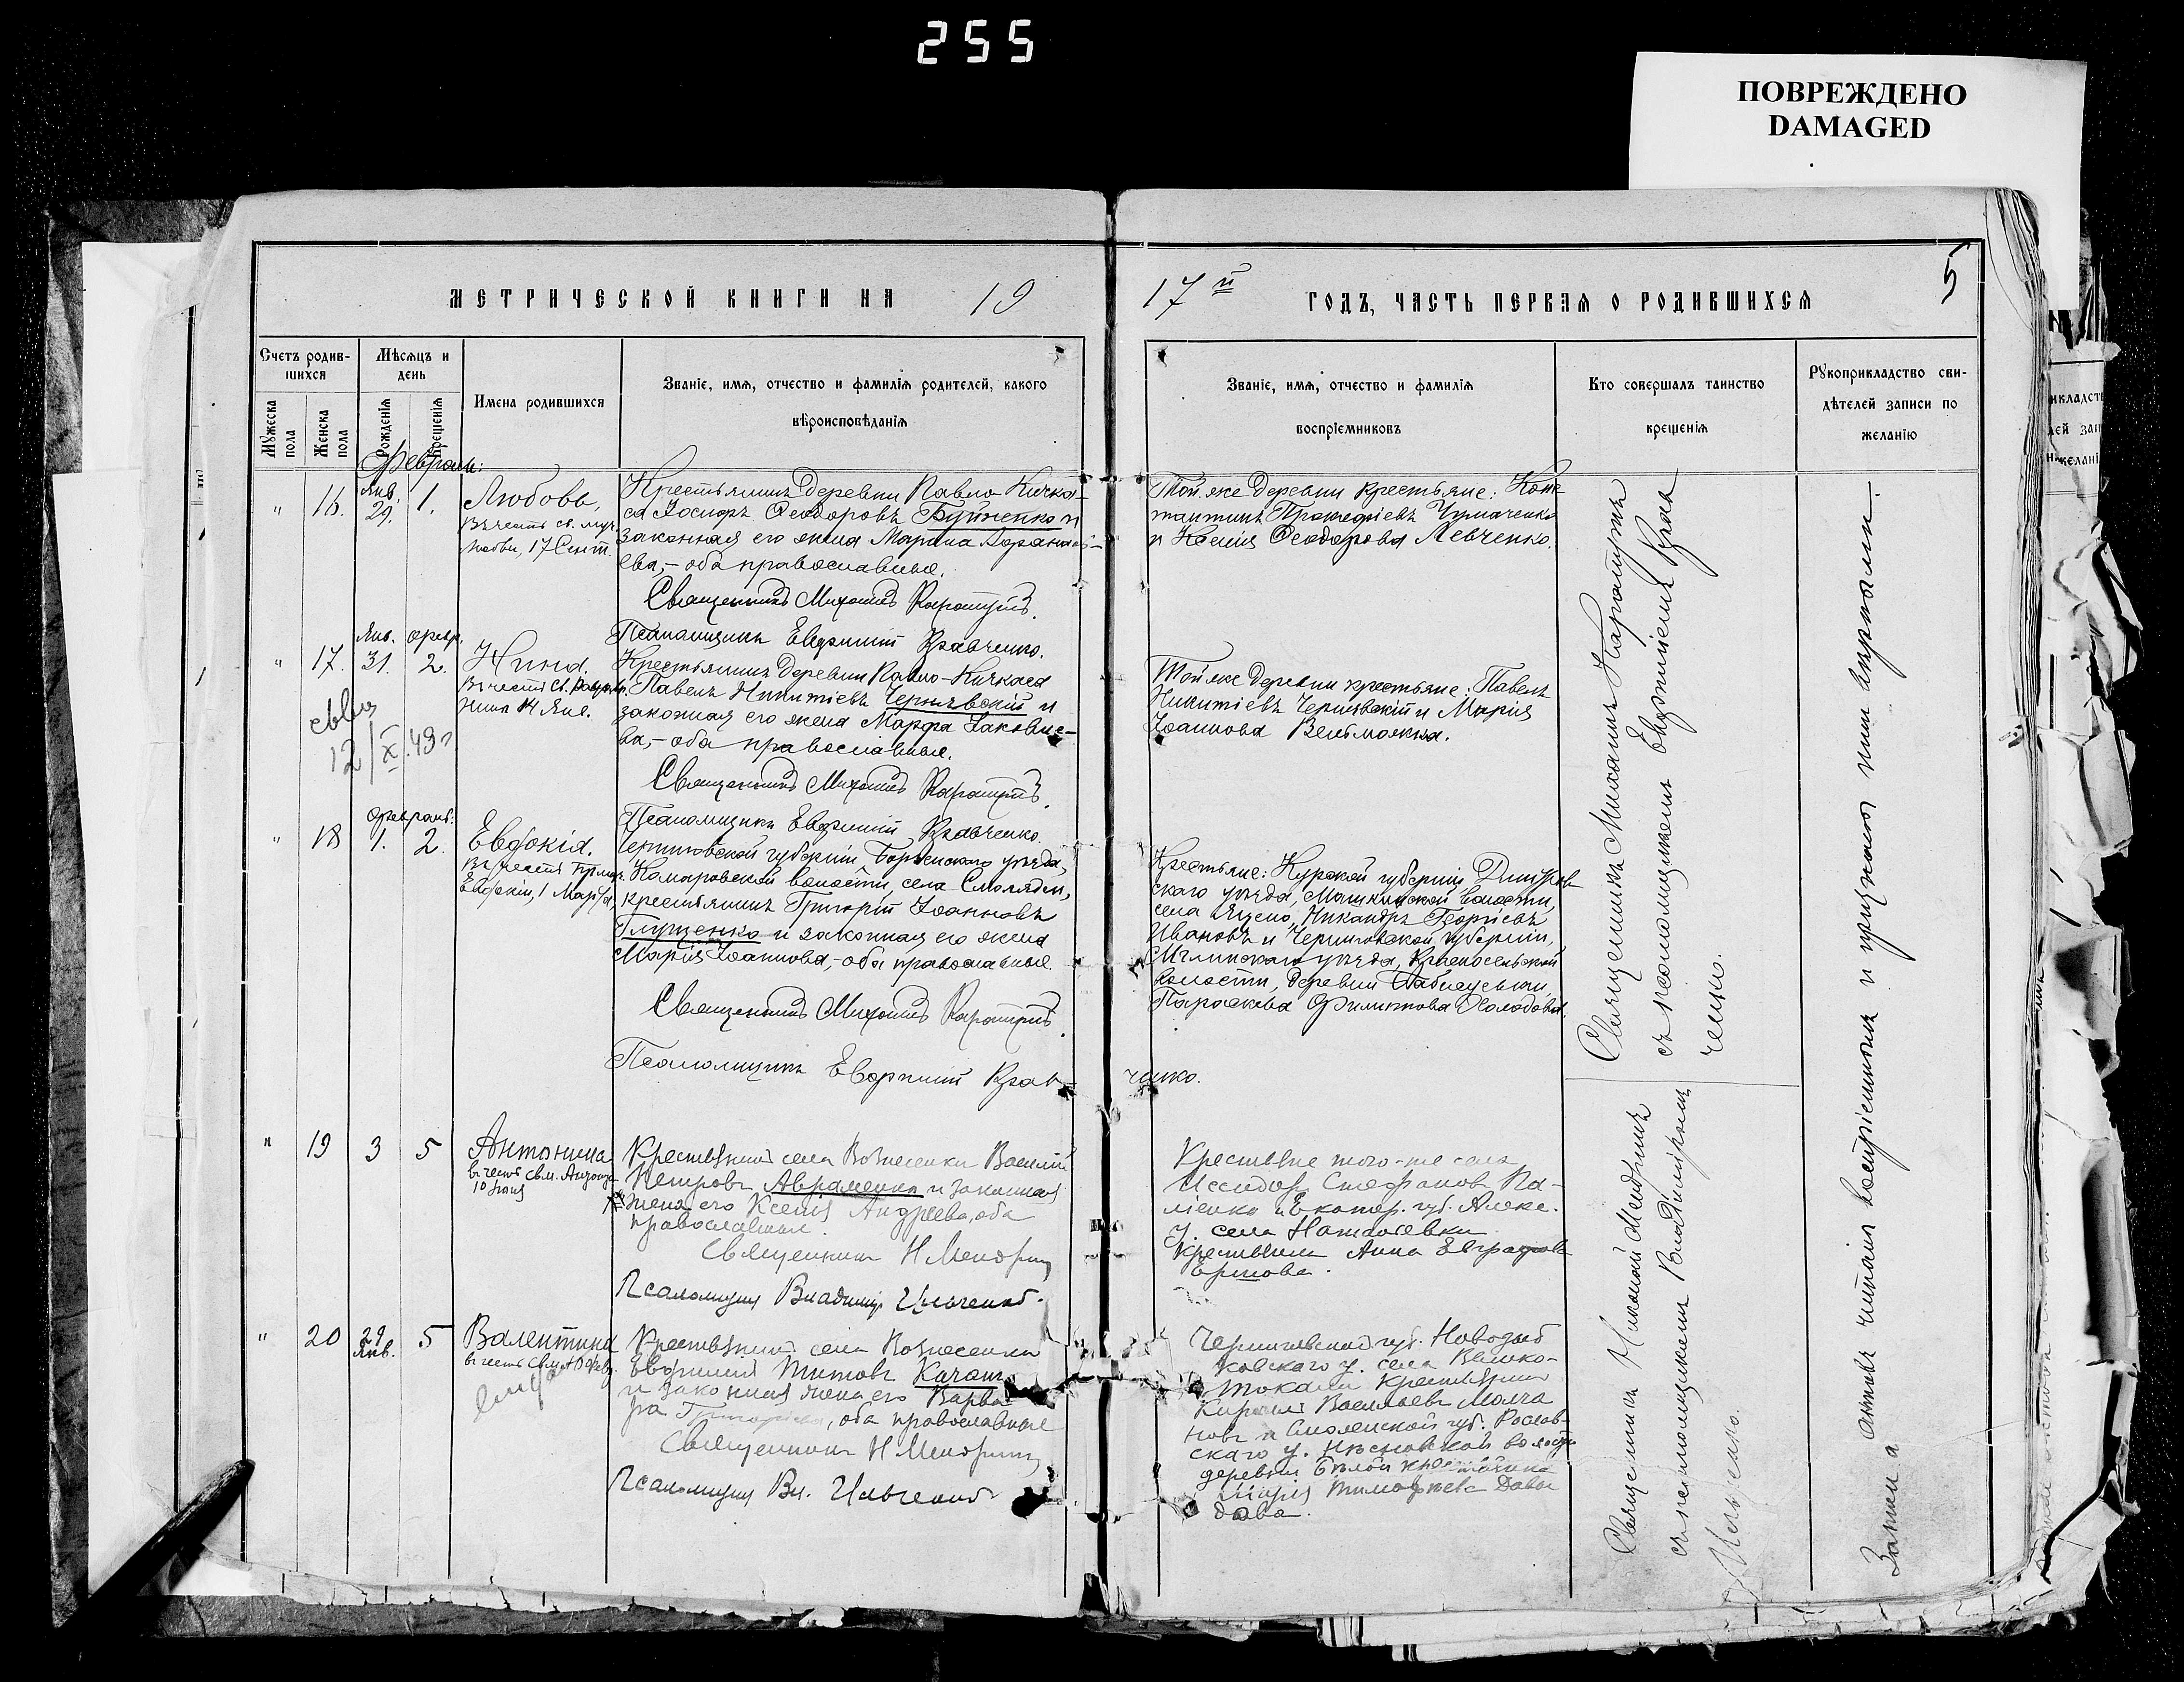 255
ПОВРЕЖДЕНО
DAMAGED
МЕТРИЧЕСКОЙ КНИГИ НА 19
17й ГОДЪ, ЧАСТЬ ПЕРВАЯ О РОДИВШИХСЯ
5
Счетъ родив-
шихся
Мужеска пола
Женска пола
Мѣсяцъ и
день
Рожденія
Крещенія
Имена родившихся
Званіе, имя, отчество и фамилія родителей, какого
вѣроисповѣданія
Званіе, имя, отчество и фамилія
воспріемниковъ
Кто совершалъ таинство
крещенія
Рукоприкладство сви-
дѣтелей записи по
желанію
Февраль:
" 16. Янв. 29. 1.
Любовь,
Въ честь св. муч.
Любви, 17 Сент.
Крестьянинъ деревни Павло-Кичка-
са Іосифъ Ѳеодоровъ Буйненко и
законная его жена Марина Аѳанасі-
ева,- оба православные.
Священникъ Михаилъ
Псаломщикъ Евфимій Кравченко.
Той же деревни крестьяне: Конс-
тантинъ Прокофіевъ Чумаченко
и Ксенія Ѳеодорова Левченко.
" 17. Янв. 31. февр. 2.
Нина.
Въ честь св.
Нины 14 Янв.
12/X 49г
Крестьянинъ деревни Павло-Кичкаса
Павелъ Никитіевъ Чернявскій и
законная его жена Марфа Іаковле-
ва,- оба православные.
Священникъ Михаилъ
Псаломщикъ Евфимій Кравченко.
Той же деревни крестьяне: Павелъ
Никитіевъ Чернявскій и Марія
Іоаннова Вельможна.
" 18 февраль: 1. 2.
Евдокія.
Въ честь
Евдокіи, 1 Марта,
Черниговской губерніи, Борзенскаго уѣзда,
Комаровской волости, села Смоляжи,
крестьянинъ Григорій Іоанновъ
Глущенко и законная его жена
Марія Іоаннова,- оба православные.
Священникъ Михаилъ
Псаломщикъ Евфимій Крав-
ченко.
Крестьяне: Курской губерніи, Дмитров-
скаго уѣзда, волости,
села Никандръ Георгіевъ
Ивановъ и Черниговской губерніи,
Мглинскаго уѣзда,
волости, деревни
Параскева Филиппова Холодова.
" 19 3 5
Антонина
въ честь св. м.
10 Іюня
Крестьянинъ села Вознесенки Василій
Петровъ Авраменко и законная
жена его Ксенія Андреева, оба
православные.
Священникъ Н
Псаломщикъ Владиміръ Ильченко.
Крестьяне того-же села
Исидоръ Стефановъ Па-
ліенко и Екатер. губ. Алекс.
у. села Наталіевки
крестьянка Анна Евграфова
Ершова.
" 20 29 Янв. 5
Валентина
Крестьянинъ села Вознесенки
Евфимій Титовъ
и законная жена его Варва-
ра Григорьева, оба православные
Священникъ Н
Псаломщикъ Вл. Ильченко
Черниговской губ. Новозыб
ковскаго у. села
крестьянинъ
Кириллъ Васильевъ Молча
новъ и Смоленской губ. Рослав-
скаго у. волости
деревни
Марія Тимофеева Давы
дова.
Священникъ Михаилъ
съ псаломщикомъ Евфиміемъ Крав
ченко.
Священникъ Николай
съ псаломщикомъ Владиміромъ
Ильченко.
Записи а актовъ читаны воспріемникамъ и признаны ими вѣрными.